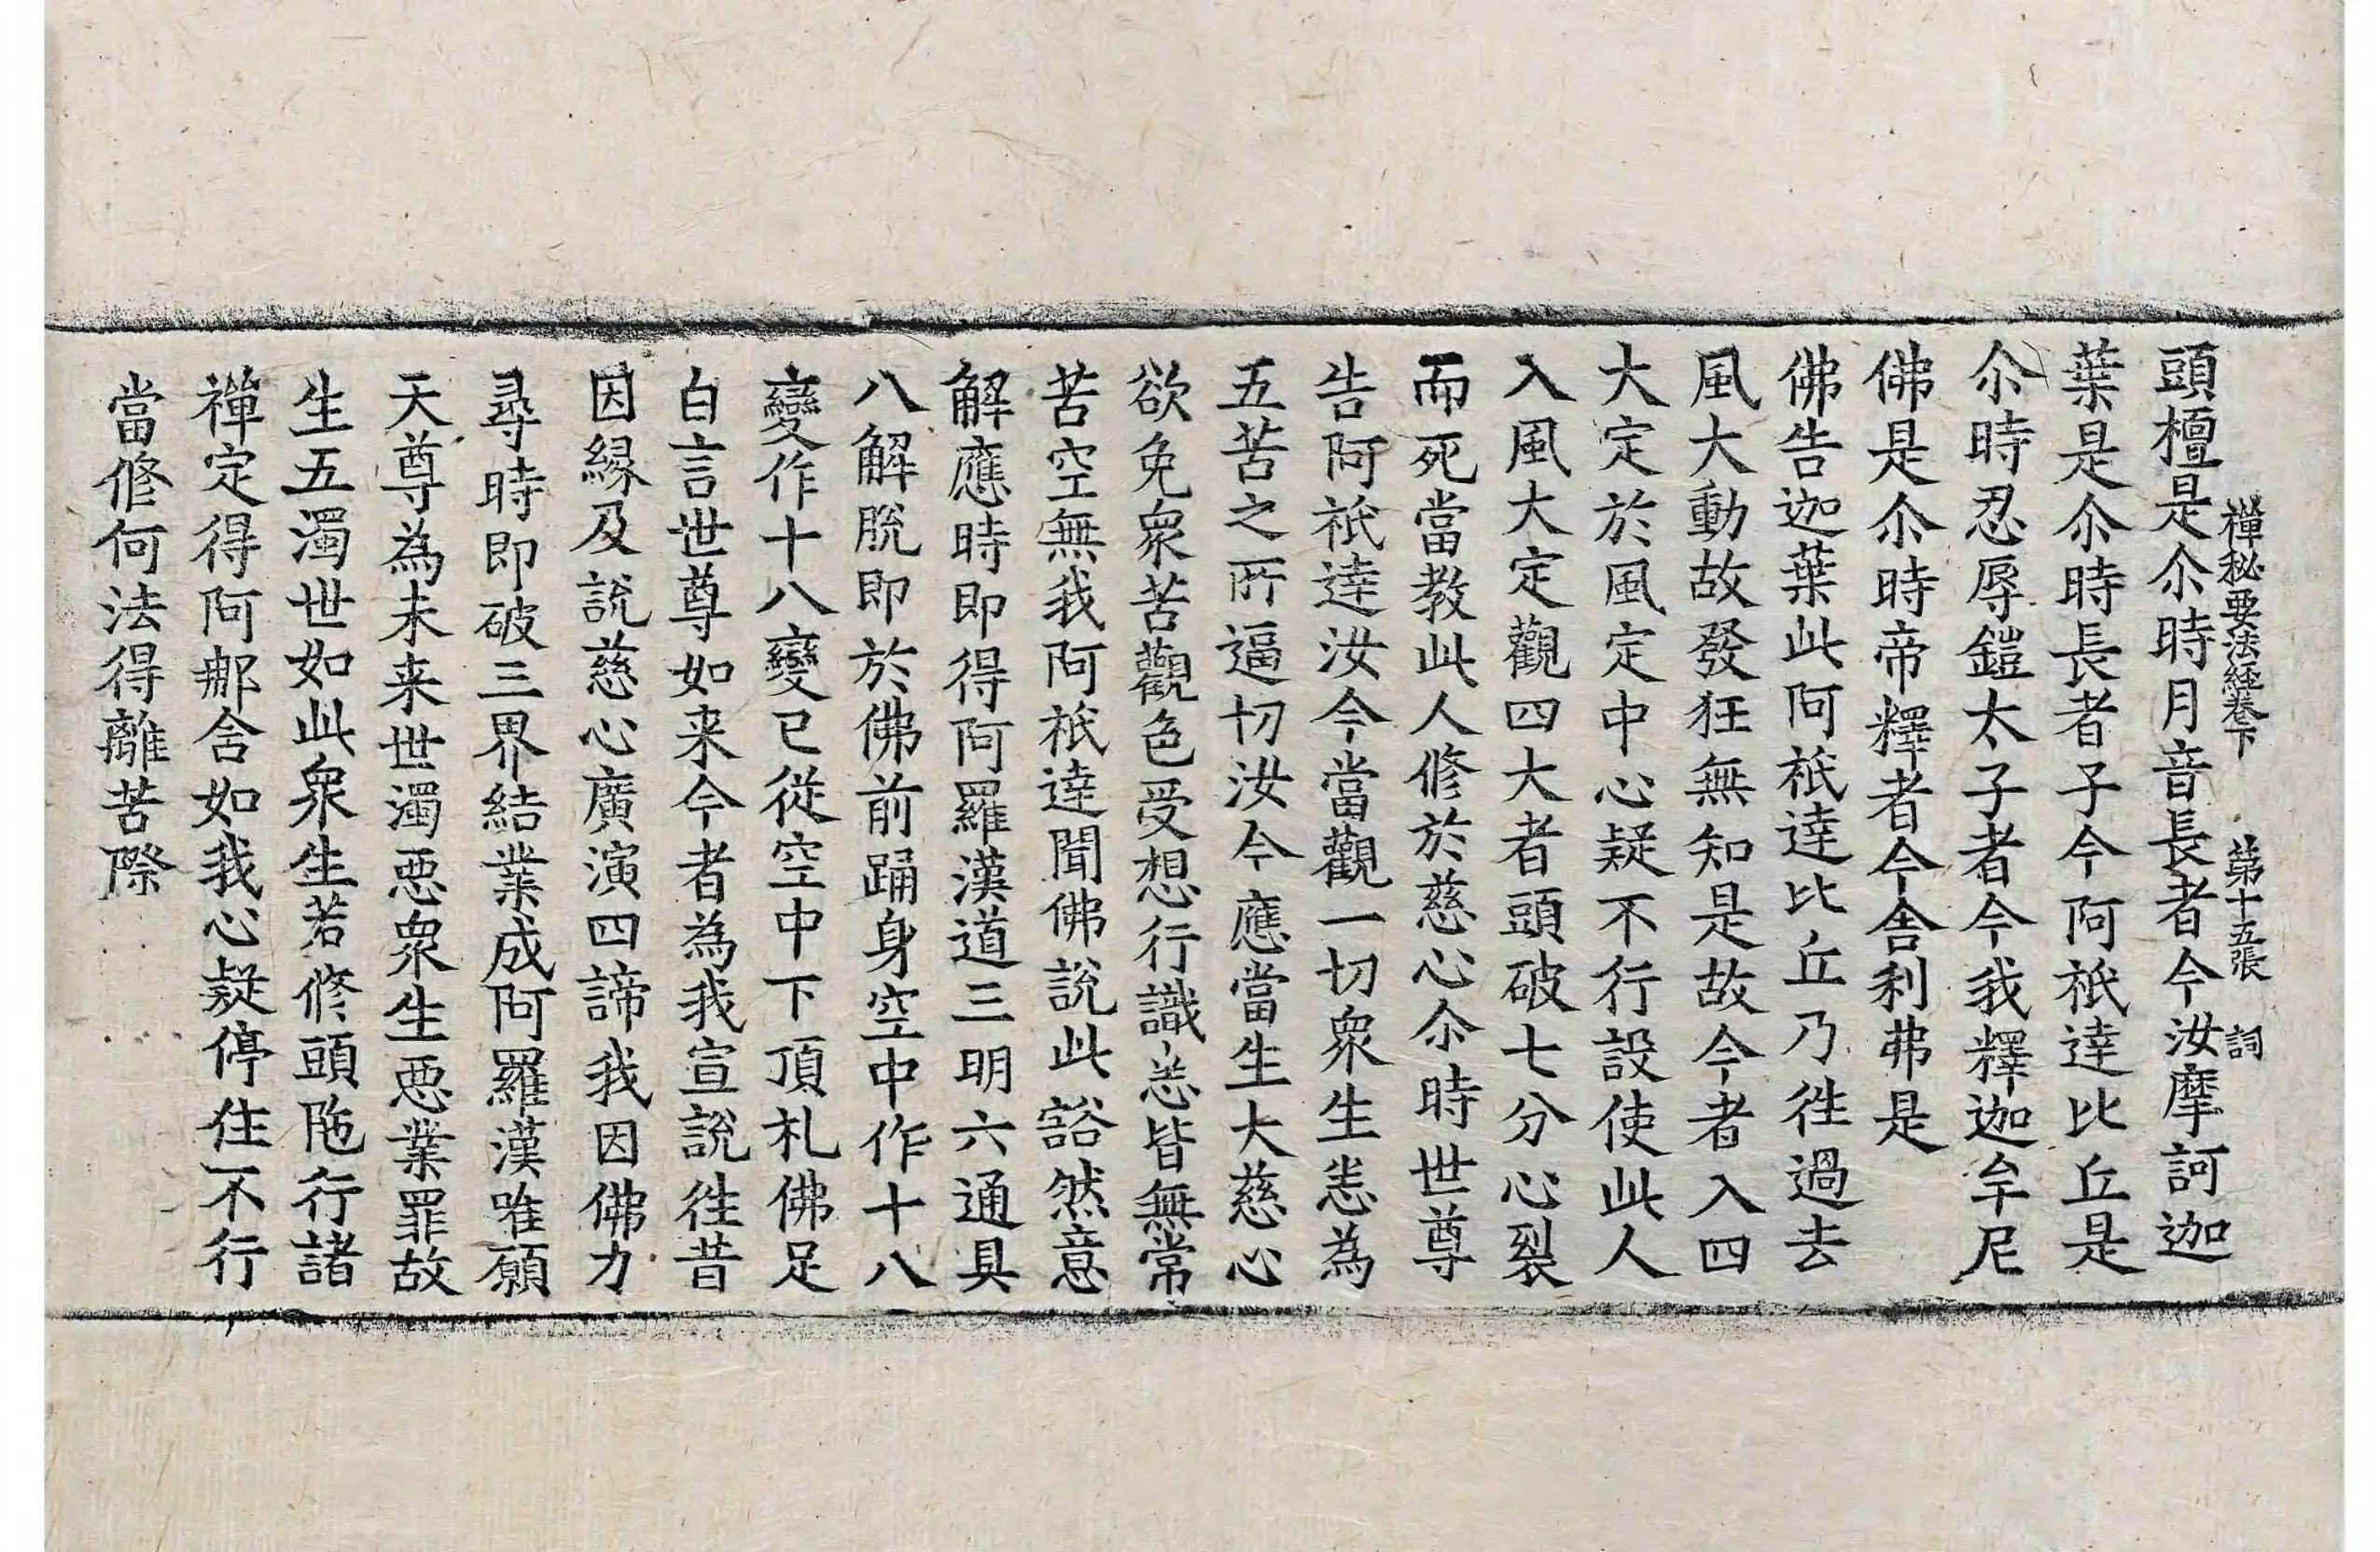 禪秘要法經卷下 第十五張 詞
頭檀是尒時月音長者今汝摩訶迦
葉是尒時長者子今阿祇達比丘是
尒時忍辱鎧太子者今我釋迦牟尼
佛是尒時帝釋者今舎利弗是
佛告迦葉此阿祇達比丘乃徃過去
風大動故發狂無知是故今者入四
大定於風定中心疑不行設使此人
入風大定觀四大者頭破七分心裂
而死當教此人修於慈心尒時世尊
告阿祇達汝今當觀一切衆生恙為
五苦之所逼切汝今應當生大慈心
欲免衆苦觀色受想行識恙皆無常
苦空無我阿祇達聞佛說此谽然意
解應時即得阿羅漢道三明六通具
八解脫即於佛前踊身空中作十八
變作十八變已從空中下頂札佛足
白言世尊如来今者為我宣說徃昔
因緣及說慈心廣演四諦我因佛力
尋時即破三界結業成阿羅漢唯願
天尊為未来世濁悪衆生悪業罪故
生五濁世如此衆生若修頭陁行諸
禪定得阿䣍舍如我心疑停住不行
當修何法得離苦際